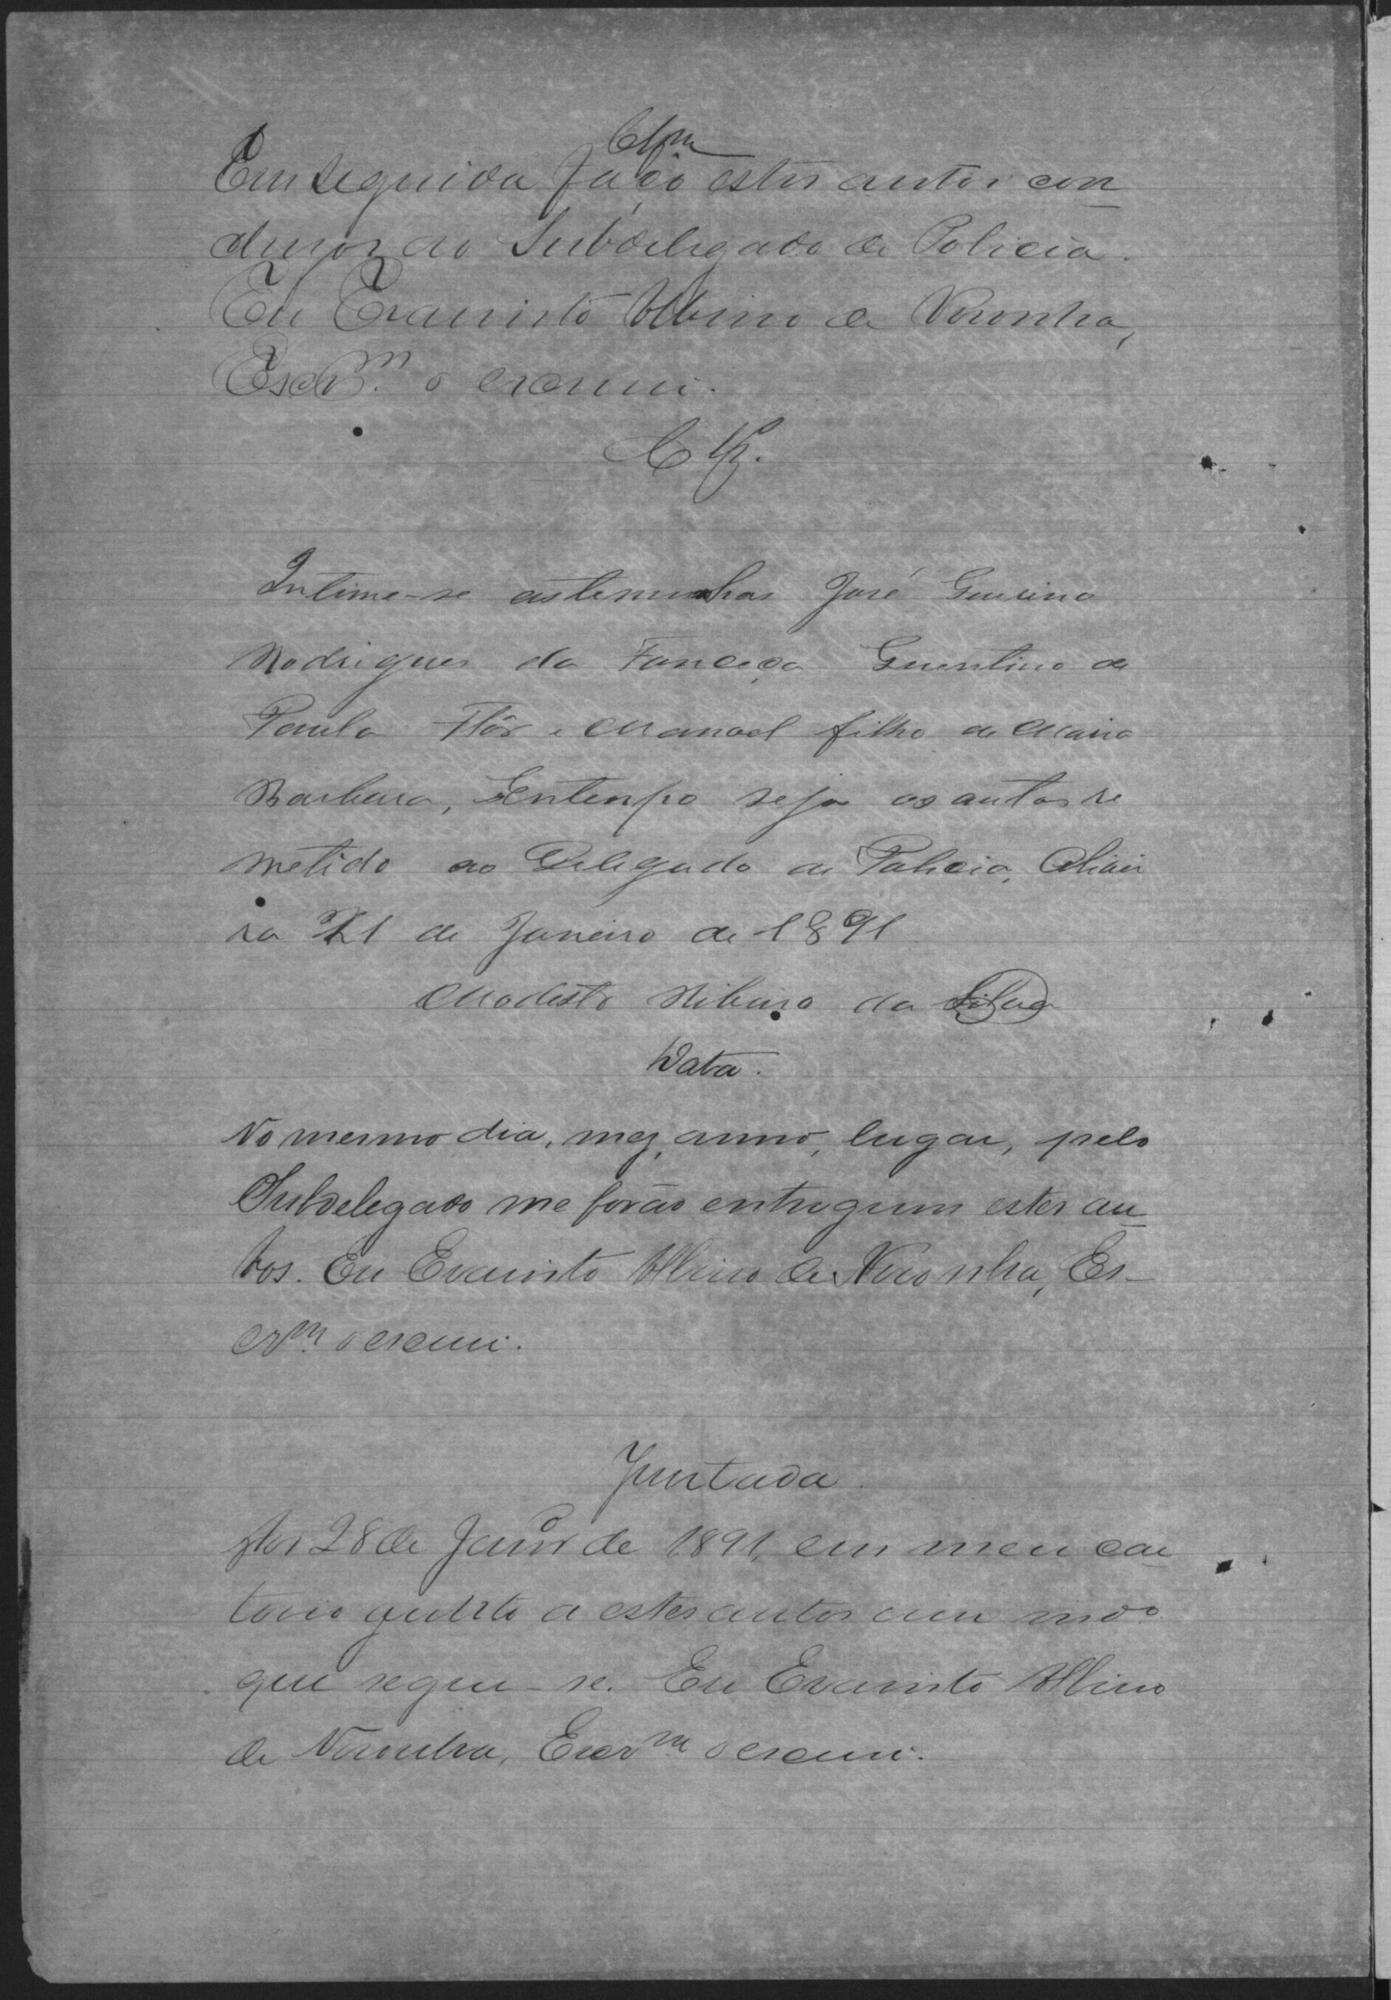 Clsm
Em seguida faço estes autos con
clusoz ao Subdelegado de Policia.
Eu Evaristo Albino de Noronha,
Escrm. o escrevi.
Clz.
Intime-se astemunhas José Guirino
Rodrigues da Fonceça Guentino de
Paula Flôr e Manoel filho de Maria
Barbara, Entenpo seja os autos re
metido ao Delegado de Policia,
ra 21 de Janeiro de 1891
Modesto Ribeiro da Silva
Data.
No mesmo dia, mez, anno, lugar, pelo
Subdelegado me forão entregues estes au
tos. Eu Evaristo Albino de Noronha, Es-
crm. o escrevi.
Juntada.
Aos 28 de Janro de 1891, em meu car
torio junto a estes autos um mdo.
que segue-se. Eu Evaristo Albino
de Noronha, Escrm. o escrevi.